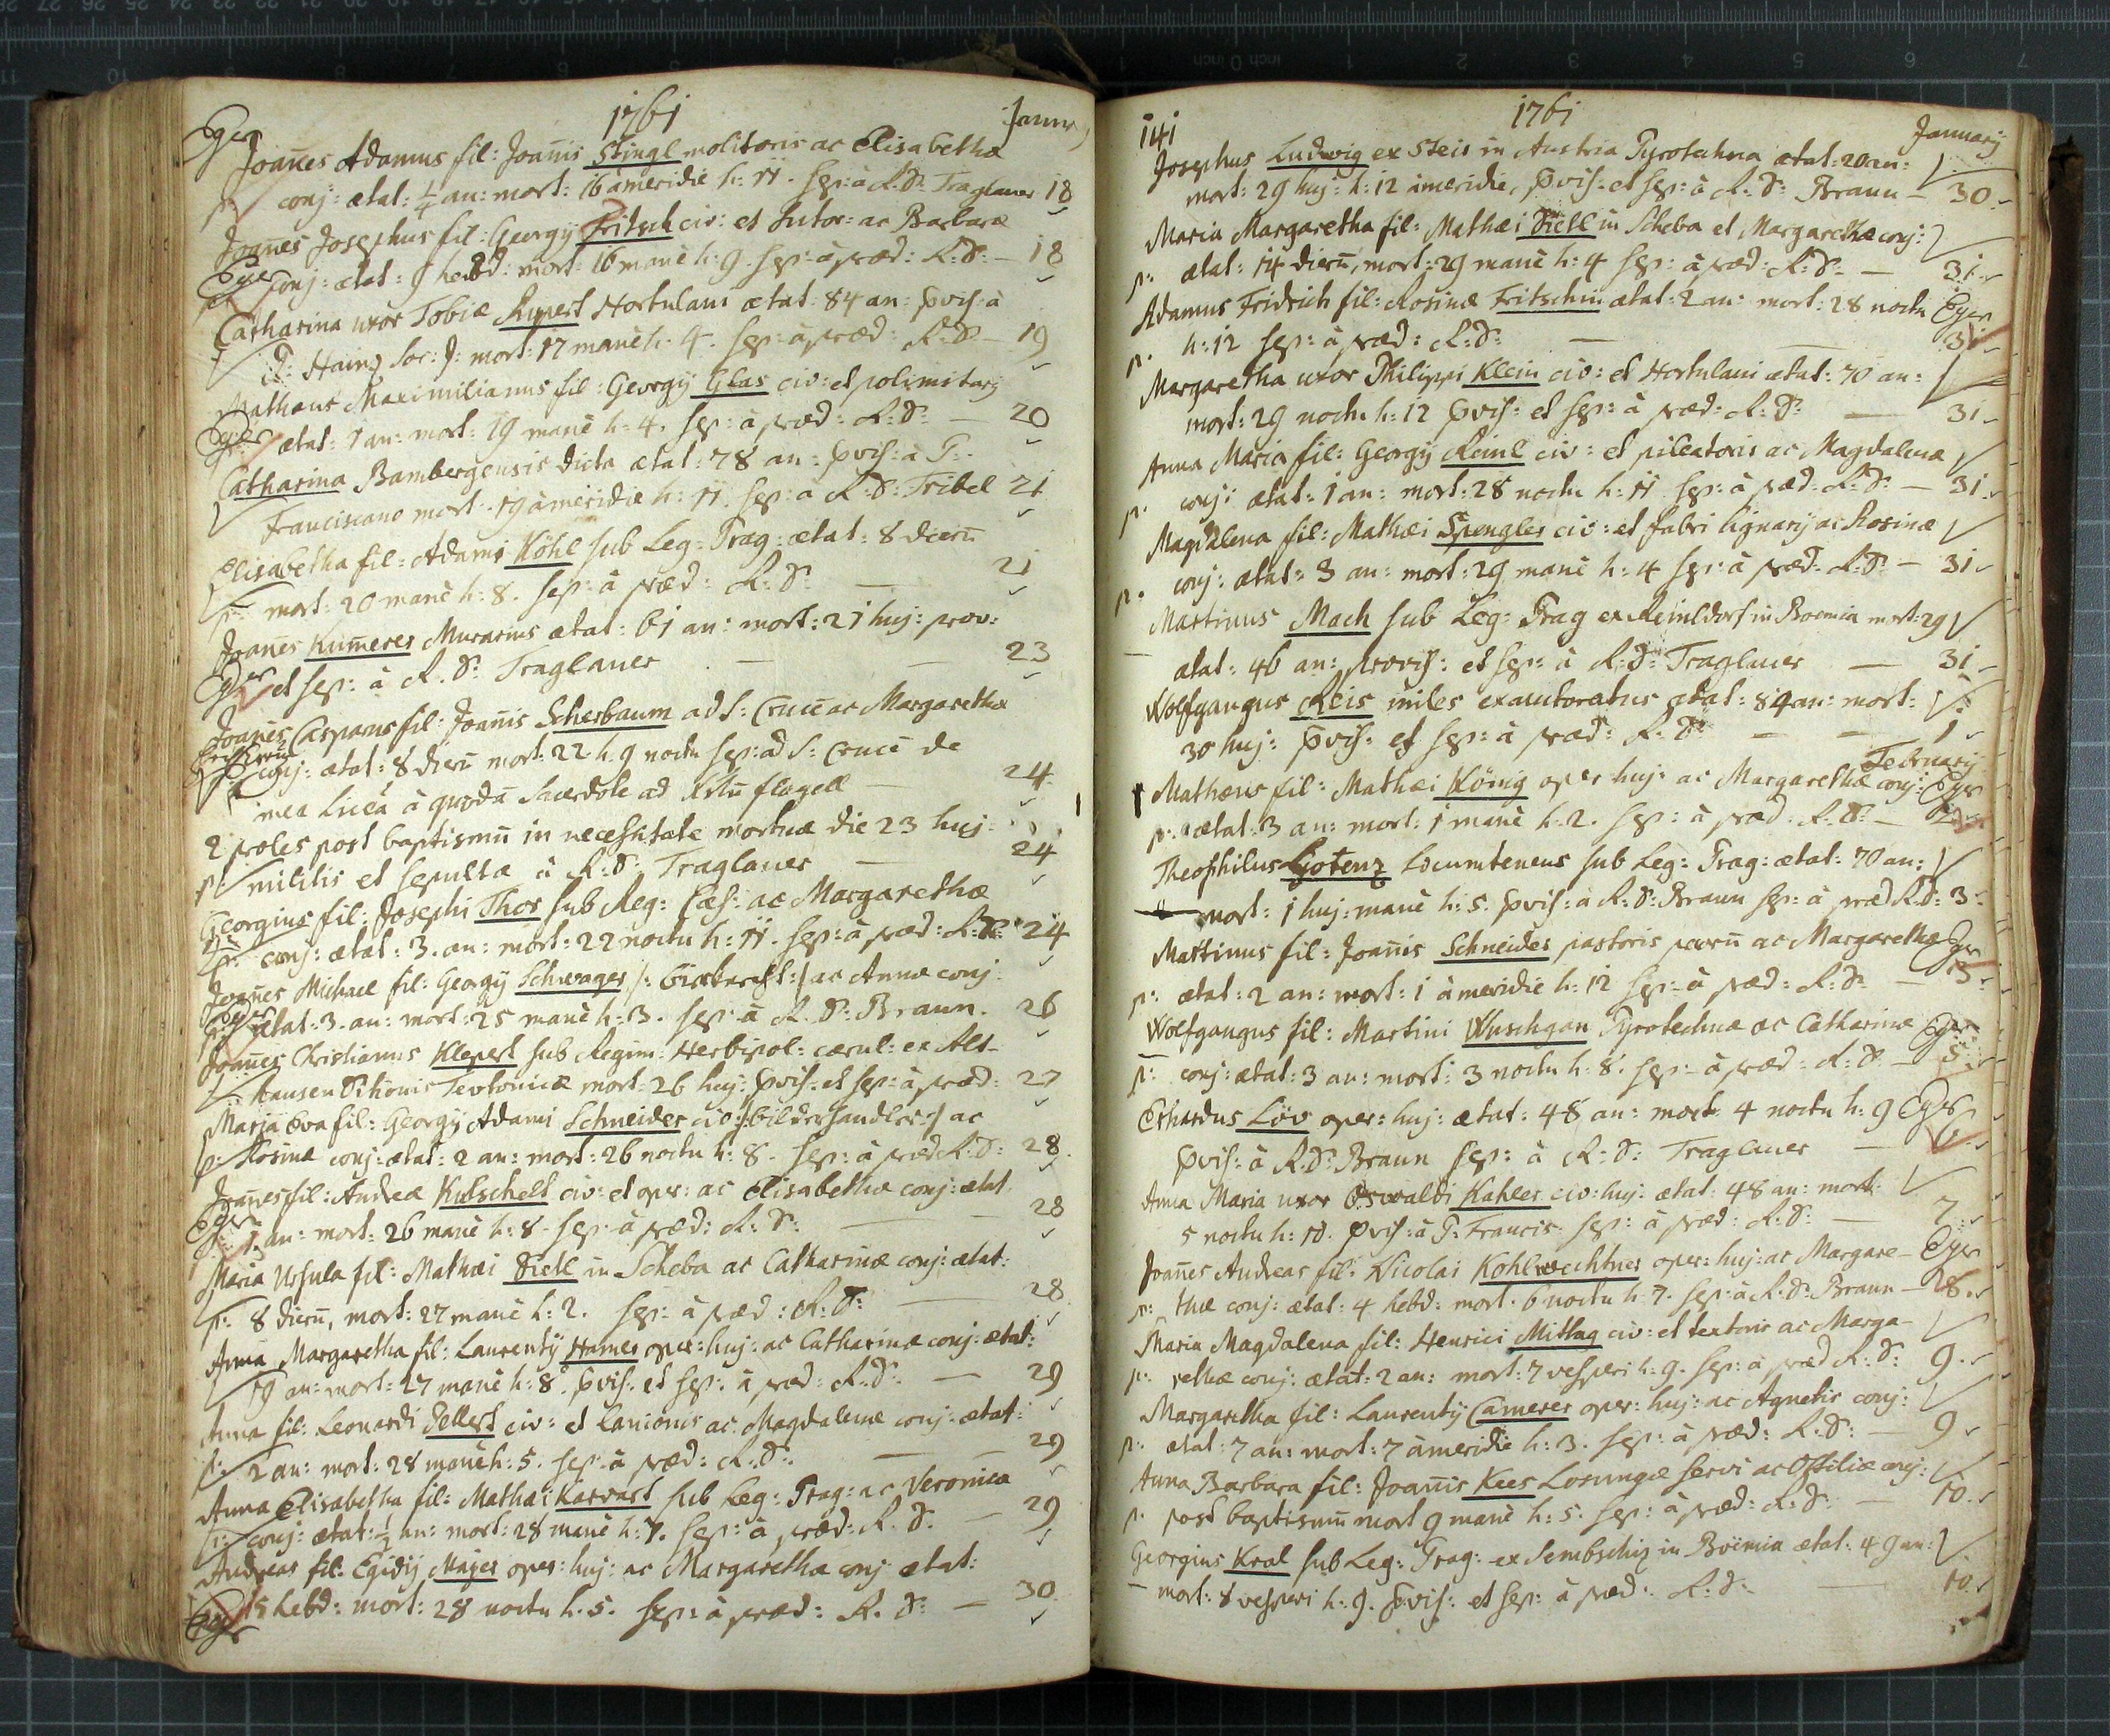 Eger 1761 January
Joañes Adamus fil: Joañis Stingl molitoris ac Elisabethæ
p: conj: ætat: 1/4 an: mort: 16 à meridie h: 11. sep: à R: D: Traglauer 18
Joañes Josephus fil: Georgÿ Fritsch civ: et sutor: ac Barbaræ
Eger conj: ætat: hebd: mort: 16 manè h: 9. sep: à præd: R: D: – 18
Catharina uxor Tobiæ Rupert Hortulani ætat: 84 an: pvis: à
P: Hainz Soc: J: mort: 17 manè h: 4. sep: à præd: R: D – 19
Mathæus Maximilianus fil: Georgÿ Glas civ: et polimitarÿ
Eger ætat: 1 an: mort: 19 manè h: 4. sep: à præd: R: D: – 20
Catharina Bambergensis dicta ætat: 78 an: pvis: à P:
Franciscano mort: 19 à meridie h: 11. sep: à R: D: Tribel 21
Elisabetha fil: Adami Köhl sub Leg: Prag: ætat: 8 dierũ
p: mort: 20 manè h: 8. sep: à præd: R: D: – 21
Joañes Kum̃erer Murarius ætat: 61 an: mort: 21 huj: prov:
Eger et sep: à R. D: Traglauer – – 23
Joañes Casparus fil: Joañis Scherbaum ad S: Crucẽ ac Margarethæ
conj: ætat: 8 dierũ mort: 22 h. 9 noctu sep: ad S: Crucẽ de
mea à quodã Sacerdote ad flagell – 24
2 proles post baptismũ in necessitate mortuæ die 23 huj:
p: militis et sepultæ à R: D: Traglauer – 24
Georgius fil: Josephi Thor sub Reg: Cæs: ac Margarethæ
p: conj: ætat: 3. an: mort: 22 noctu h: 11. sep: à præd: R: D: 24
Joañes Michael fil: Georgÿ Schwager /: :/ ac Annæ conj:
Eger ætat: 3. an: mort: 25 manè h: 3. sep: à R. D: Braun. 26
Joañes Christianus Klepert sub Regim: Herbipol: cærul: ex Alt-
hausen Teutonicæ mort: 26 huj: pvis: et sep: à præd: 27
Maria Eva fil: Georgÿ Adami Schneider civ: /: bilderhandler :/ ac
p: Rosinæ conj: ætat: 2 an: mort: 26 noctu h: 8. sep: à præd R: D: 28
Joañes fil: Andreæ Kutschelt civ: et oper: ac Elisabethæ conj: ætat
Eger 1 an: mort: 26 manè h: 8. sep: à præd: R: D: – 28
Maria Ursula fil: Mathæi Dietl in Scheba ac Catharinæ conj: ætat:
p: 8 dierũ, mort: 27 manè h: 2. sep: à præd: R: D: – 28
Anna Margaretha fil: Laurentÿ Hamer oper: huj: ac Catharinæ conj: ætat:
19 an: mort: 27 manè h: 8. pvis: et sep: à præd: R: D: – 29
Anna fil: Leonardi Dellert civ: et lanionis ac Magdalenæ conj: ætat:
p: 2 an: mort: 28 manè h: 5. sep: à præd: R: D: – 29
Anna Elisabetha fil: Mathæi Karvart sub Leg: Prag: ac Veronica
p: conj: ætat: 1/2 an: mort: 28 manè h: 7. sep: à præd: R. D. – 29
Andreas fil: Egidÿ Majer oper: huj: ac Margaretha conj ætat:
Eger 15 hebd: mort: 28 noctu h. 5. sep: à præd: R. D: – 30
141 1761 Januarÿ
Josephus Ludwig ex Stein in Austria Pyrotechna ætat: 20 an:
mort: 29 huj: h: 12 à meridie, pvis: et sep: à R: D: Braun – 30
Maria Margaretha fil: Mathæi Dietl in Scheba et Margarethæ conj:
p: ætat: 14 dierũ, mort: 29 manè h: 4 sep: à præd: R: D: – 31
Adamus Fridrich fil: Rosinæ Fritschin ætat: 2 an: mort: 28 noctu Eger
p: h: 12 sep: à præd: R: D: – 31
Margaretha uxor Philippi Klein civ: et Hortulani ætat: 70 an:
mort: 29 noctu h: 12 pvis: et sep: à præd: R: D: – 31
Anna Maria fil: Georgÿ Reinl civ: et pileatoris ac Magdalena
p: conj: ætat: 1 an: mort: 28 noctu h: 11 sep: à præd: R: D: – 31
Magdalena fil: Mathæi Spengler civ: et fabri lignarÿ ac Rosinæ
p: conj: ætat: 3 an: mort: 29 manè h: 4 sep: à præd: R: D: – 31
Martinus Mach sub Leg: Prag ex Reimldorf in Boemia mort: 29
– ætat: 46 an: provis: et sep: à R: D: Traglauer – 31
Wolfgangus Reis miles exautoratus ætat: 84 an: mort:
30 huj: pvis: et sep: à præd: R: D: – – 1
Februarÿ
Mathæus fil: Mathæi König oper huj: ac Margarethæ conj: Eger
p: ætat: 3 an: mort: 1 manè h: 2. sep: à præd: R: D: – 2
Theophilus Gotenz Locumtenens sub Leg: Prag: ætat: 70 an:
mort: 1 huj: manè h: 5. pvis: à R: D: Braun sep: à præd R: D: 3
Martinus fil: Joañis Schneider pastoris ac Margarethæ Eger
p: ætat: 2 an: mort: 1 à meridie h: 12 sep: à præd: R: D: – 3
Wolfgangus fil: Martini Wuschgan Pyrotechnæ ac Catharinæ Eger
p: conj: ætat: 3 an: mort: 3 noctu h: 8. sep: à præd: R: D – 5
Erhardus Löv oper: huj: ætat: 48 an: mort 4 noctu h: 9 Eger
pvis: à R: D: Braun sep: à R: D: Traglauer –
Anna Maria uxor Oswaldi Kahler civ: huj: ætat: 48 an: mort:
5 noctu h: 10. pvis: à P: Francis: sep: à præd: R: D: – 7
Joañes Andreas fil: Nicolai Kohlwechtner oper: huj: ac Margare- Eger
p: thæ conj: ætat: 4 hebd: mort: 6 noctu h: 7. sep: à R: D: Braun – 8
Maria Magdalena fil: Henrici Mittag civ: et textoris ac Marga-
p: rethæ conj: ætat: 2 an: mort: 7 vesperi h: 9. sep: à præd R: D: 9
Margaretha fil: Laurentÿ Camerer oper: huj: ac Agnetis conj:
p: ætat: 7 an: mort: 7 à meridiè h: 3. sep: à præd: R: D: – 9
Anna Barbara fil: Joañis Kees Losungæ servi ac Ottiliæ conj:
p: post baptismũ mort 9 manè h: 5. sep: à præd: R: D: – 10
Georgius Kral sub Leg: Prag: ex Sembschiz in Boëmia ætat: 49 an:
– mort: 8 vesperi h: 9. pvis: et sep: à præd: R: D: 10